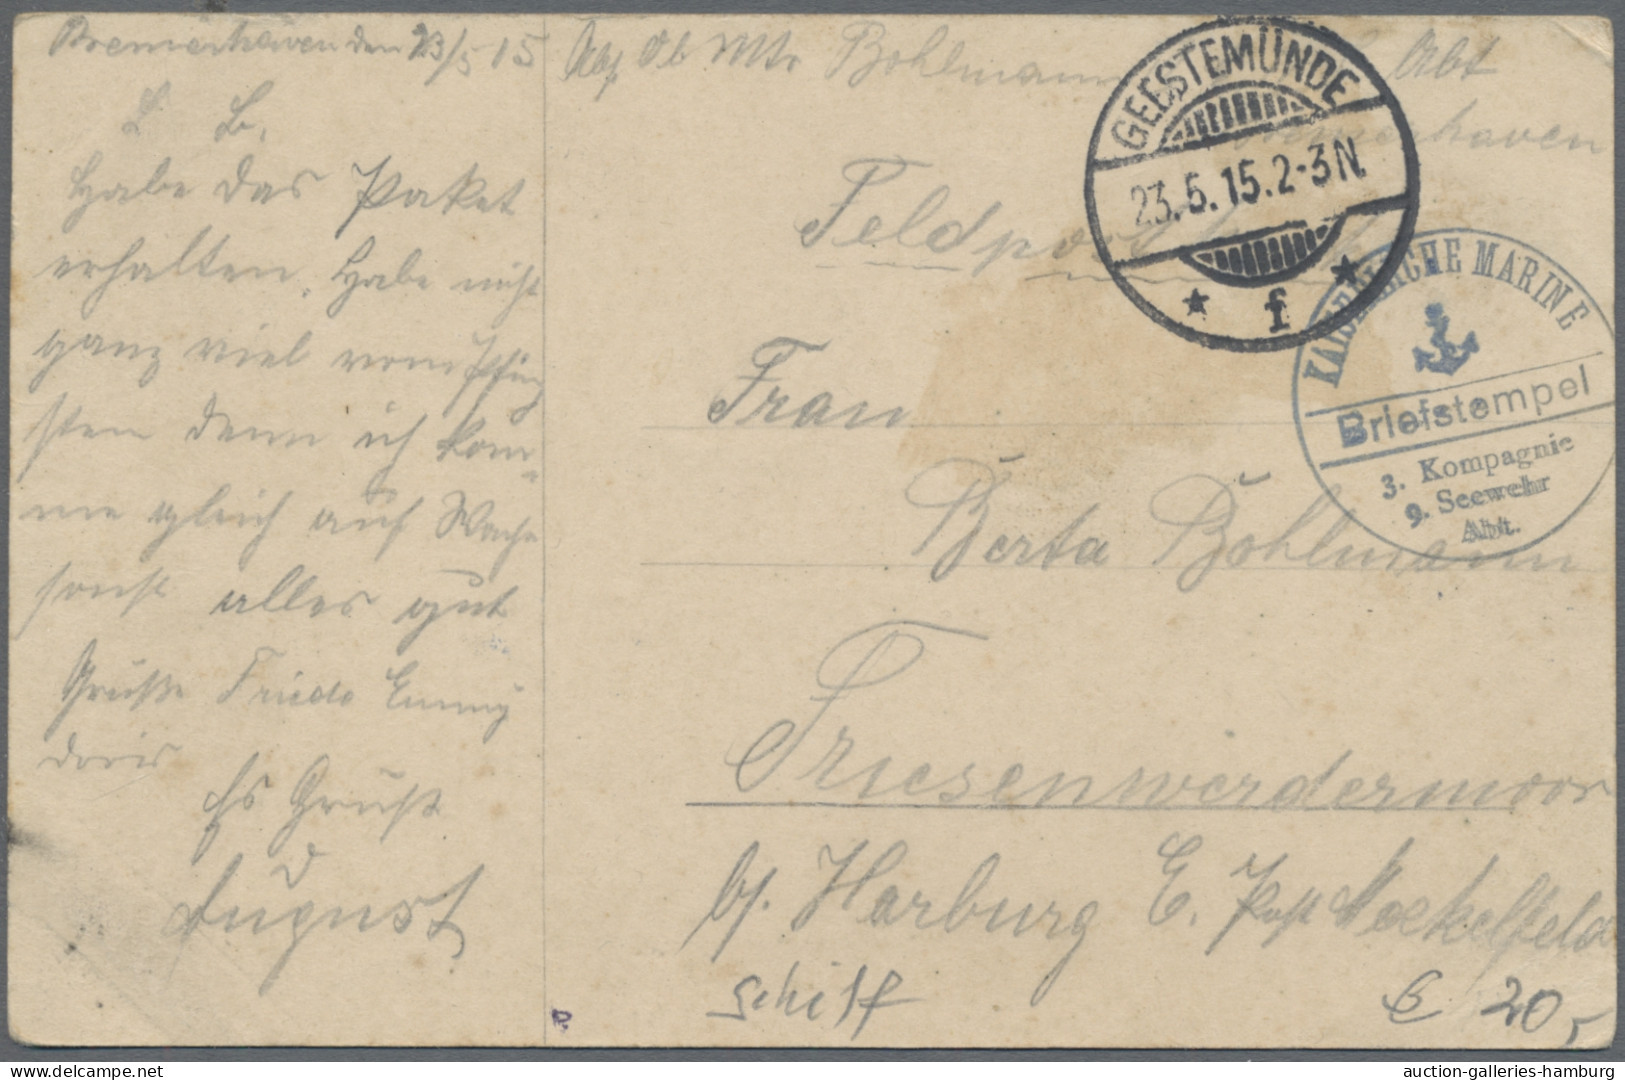 Bremerhaven den 23/5 15
L. B.
Habe das Paket
erhalten. Habe nicht
ganz viel vom Pfing
sten denn ich kom-
me gleich auf Wache
sonst alles gut
Grüße Frieda Emmy
Doris
Gruß
August
Abs. Ob Mtr Bohlmann Abt
Feldpost
Frau
Berta Bohlmann
Friesenwerdermoor
b/. Harburg E. Post Meckelfeld
Schiff
€ 20,-
GEESTEMÜNDE
23.5.15.2-3N.
* f *
KAISERLICHE MARINE
Briefstempel
3. Kompagnie
9. Seewehr
Abt.
auction-galleries-hamburg